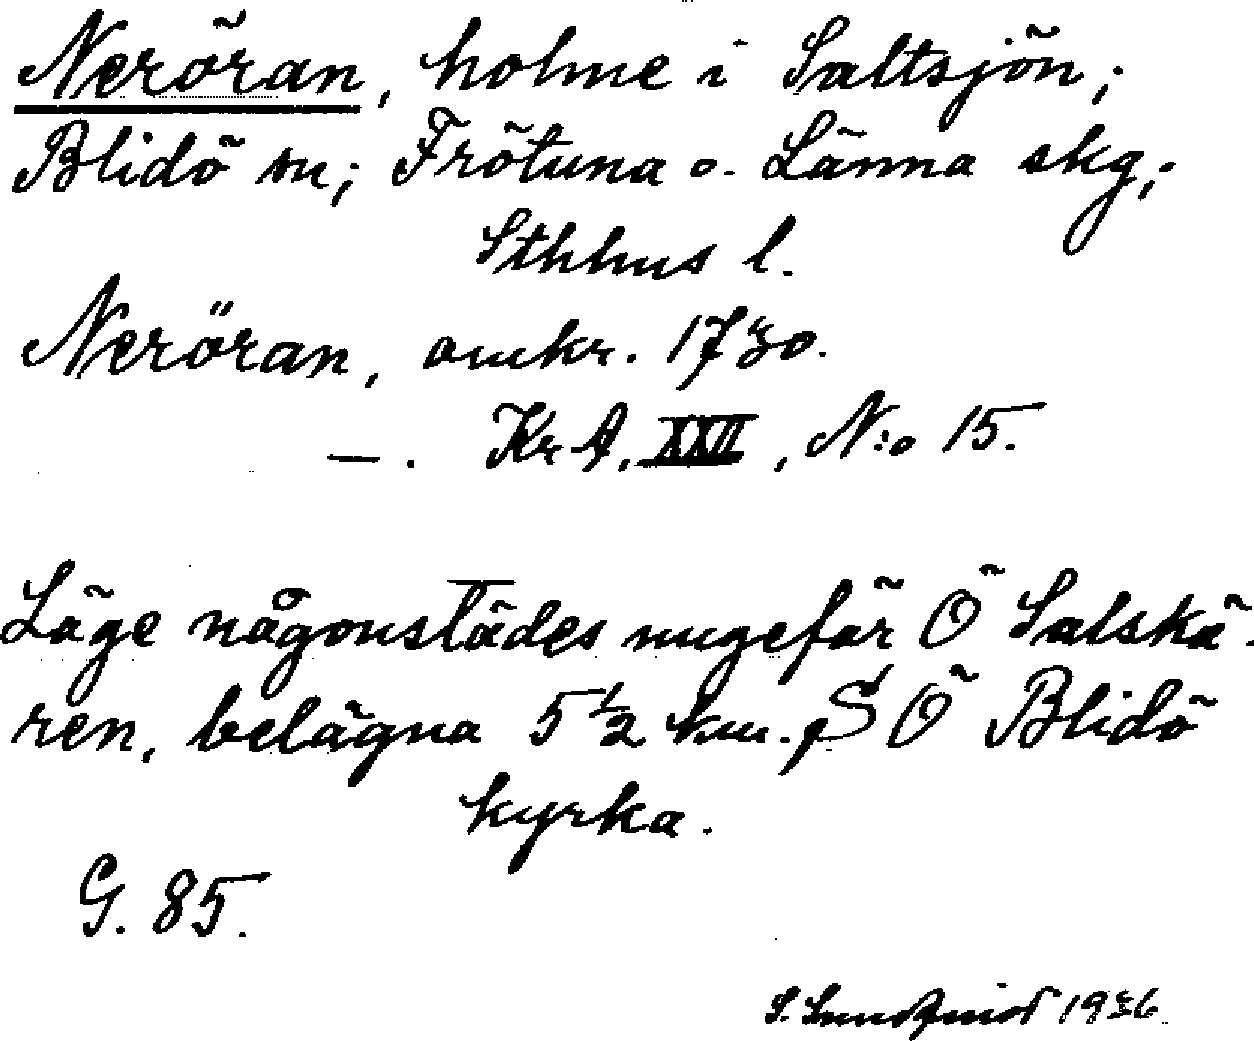 Neröran, holme i Saltsjön;
Blidö sn; Frötuna o. Länna skg;
Sthhus l.
Neröran, omkr. 1730.
—. Kr A, XXII, N:o 15.
Läge någonstädes ungefär Ö Salskä-
ren, belägna 5 1/2 km. SÖ Blidö
kyrka.
G. 85.
S. Sundqvist 1936